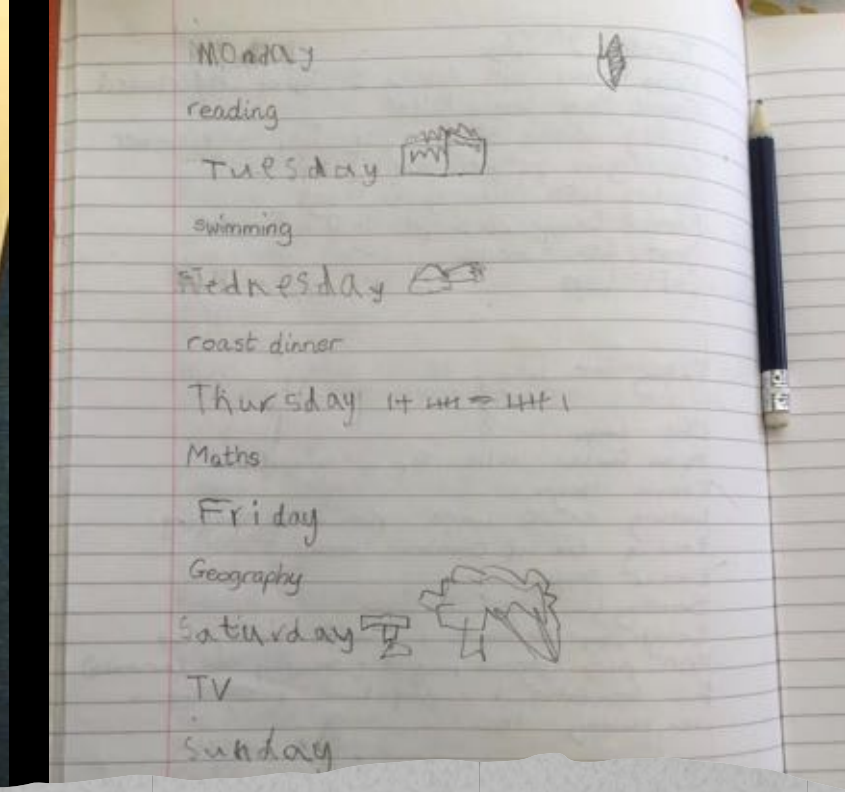 Monday
reading
Tuesday
swimming
Wednesday
roast dinner
Thursday 1+ 卌 = 卌 1
Maths
Friday
Geography
Saturday
TV
Sunday